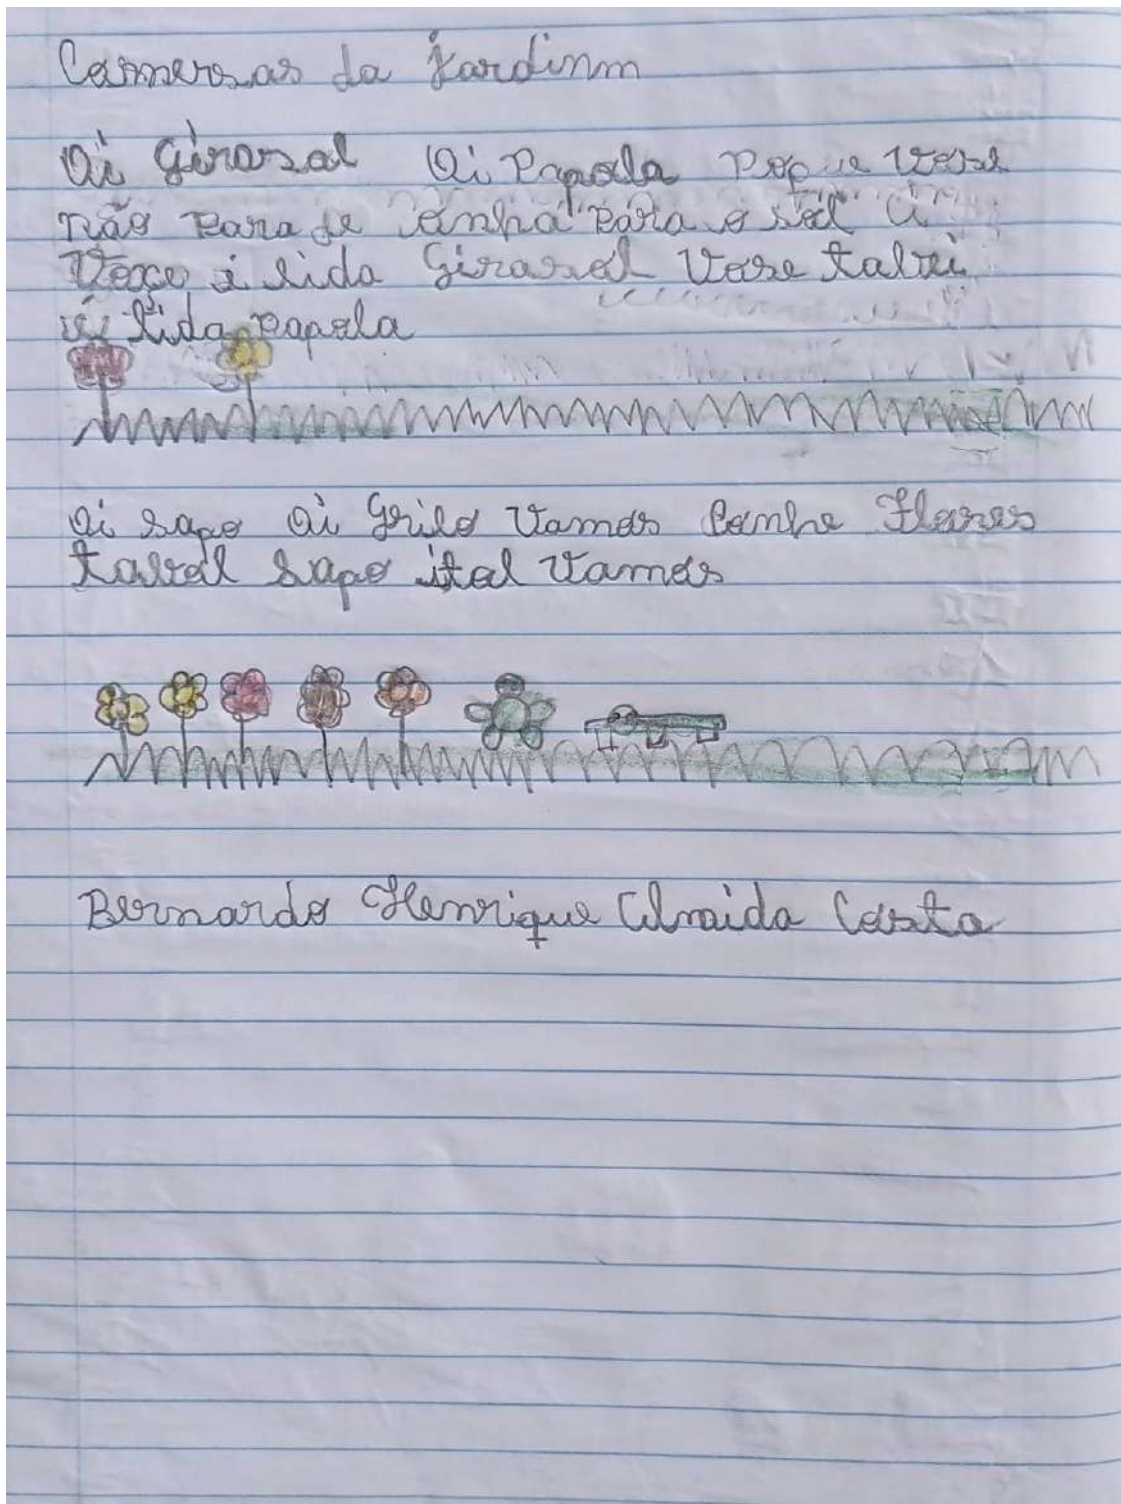 Comversas da jardinm
Oi girasol Oi Papola Popue vose
não para de onhá para o sol a
Voçe é lida Girasol Vose tabei
é lida papola
Oi sapo Oi Grilo Vamos Conhe Flores
taleal sapo ital vamos
Bernardo Henrique Almaida Costa